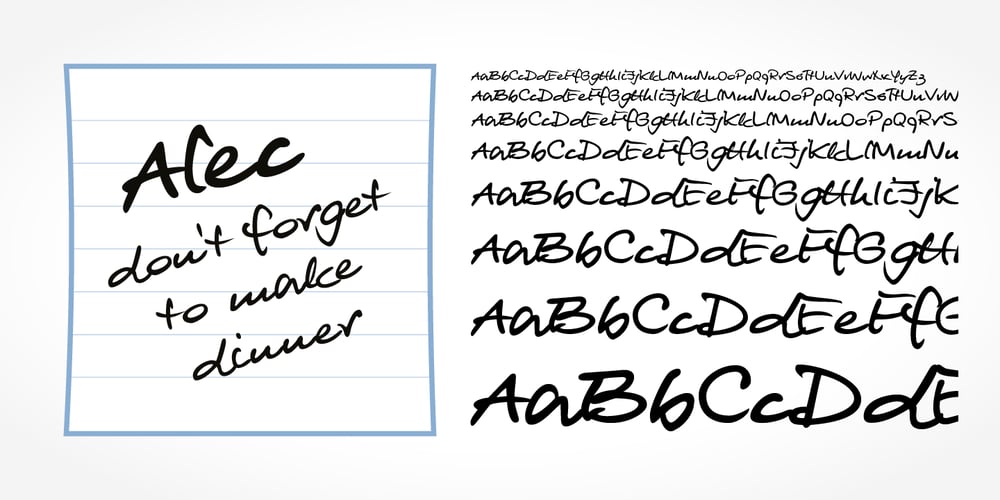 Alec
don't forget
to make
dinner
AaBbCcDdEeFfGgHhIiJjKkLlMmNnOoPpQqRrSsTtUuVvWwXxYyZz
AaBbCcDdEeFfGgHhIiJjKkLlMmNnOoPpQqRrSsTtUuVvW
AaBbCcDdEeFfGgHhIiJjKkLlMmNnOoPpQqRrS
AaBbCcDdEeFfGgHhIiJjKkLlMmNn
AaBbCcDdEeFfGgHhIiJjK
AaBbCcDdEeFfGgH
AaBbCcDdEeFfG
AaBbCcDdE